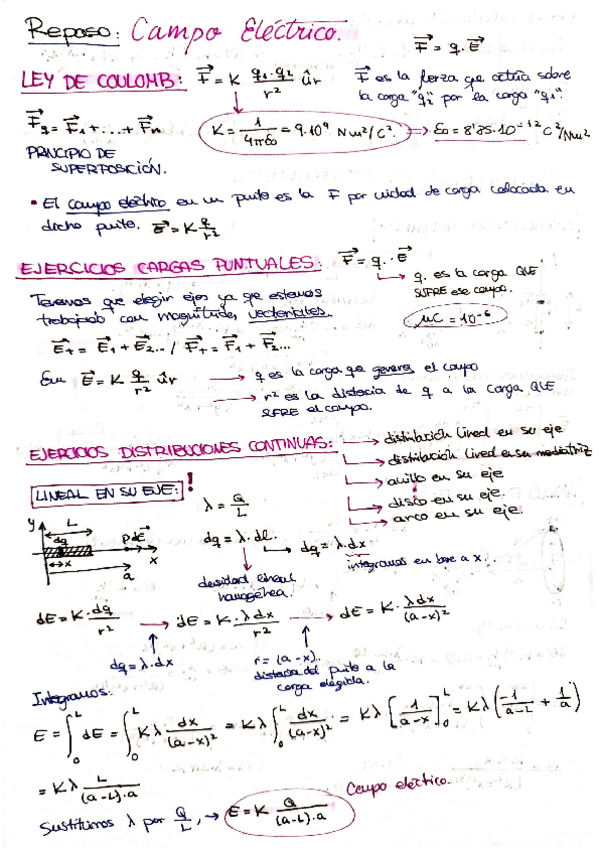 Repaso: Campo Eléctrico.
F⃗ = q · E⃗
LEY DE COULOMB: F⃗ = K (q₁·q₂)/r² ûr
F⃗ es la fuerza que actúa sobre
la carga "q₂" por la carga "q₁".
F⃗ = F⃗₁ + ... + F⃗n
K = 1/(4πε₀) = 9·10⁹ Nm²/C². → ε₀ = 8'85·10⁻¹² C²/Nm²
PRINCIPIO DE
SUPERPOSICIÓN.
• El campo eléctrico en un punto es la F por unidad de carga colocada en
dicho punto. E⃗ = K q/r²
EJERCICIOS CARGAS PUNTUALES:
F⃗ = q · E⃗
→ q. es la carga QUE
SUFRE ese campo.
Tenemos que elegir ejes ya que estamos
trabajando con magnitudes vectoriales.
μC = 10⁻⁶
E⃗T = E⃗₁ + E⃗₂... / F⃗T = F⃗₁ + F⃗₂...
En E⃗ = K q/r² ûr → q es la carga que genera el campo
→ r² es la distancia de q a la carga QUE
SUFRE el campo.
EJERCICIOS DISTRIBUCIONES CONTINUAS: → distribución lineal en su eje
→ distribución lineal en su mediatriz
→ anillo en su eje
→ disco en su eje.
→ arco en su eje.
LINEAL EN SU EJE: !
λ = Q/L
y L
dq P dE⃗
x x
a
dq = λ·dl. → dq = λ·dx
integramos en base a x...
densidad lineal
homogénea.
dE = K · dq/r² → dE = K · λdx/r² → dE = K · λdx/(a-x)²
dq = λ·dx
r = (a-x).
distancia del punto a la
carga elegida.
Integramos:
E = ∫₀ᴸ dE = ∫₀ᴸ Kλ dx/(a-x)² = Kλ ∫₀ᴸ dx/(a-x)² = Kλ [1/(a-x)]₀ᴸ = Kλ (-1/(a-L) + 1/a)
= Kλ L/((a-L)·a)
Campo eléctrico.
Sustituimos λ por Q/L, → E = K Q/((a-L)·a)